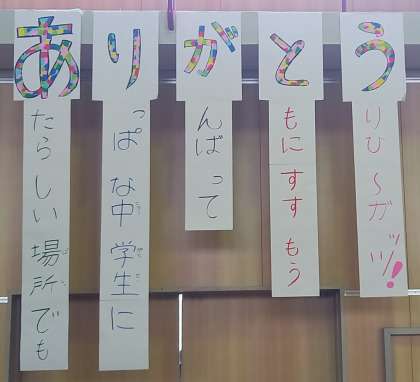 あたらしい場所でも
りっぱな中学生に
がんばって
ともにすすもう
うりひ〜ガッツ!